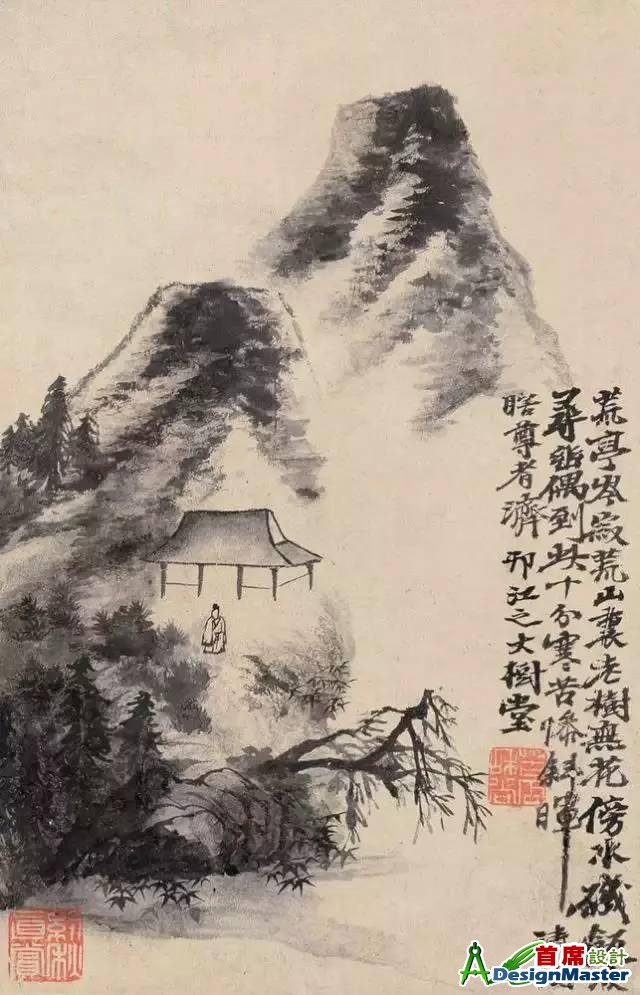 荒亭岑寂荒山裏老樹無花傍水磯
尋詩偶到此十分寒苦惨斜暉
瞎尊者濟 邗江之大樹堂
首席設計
DesignMaster